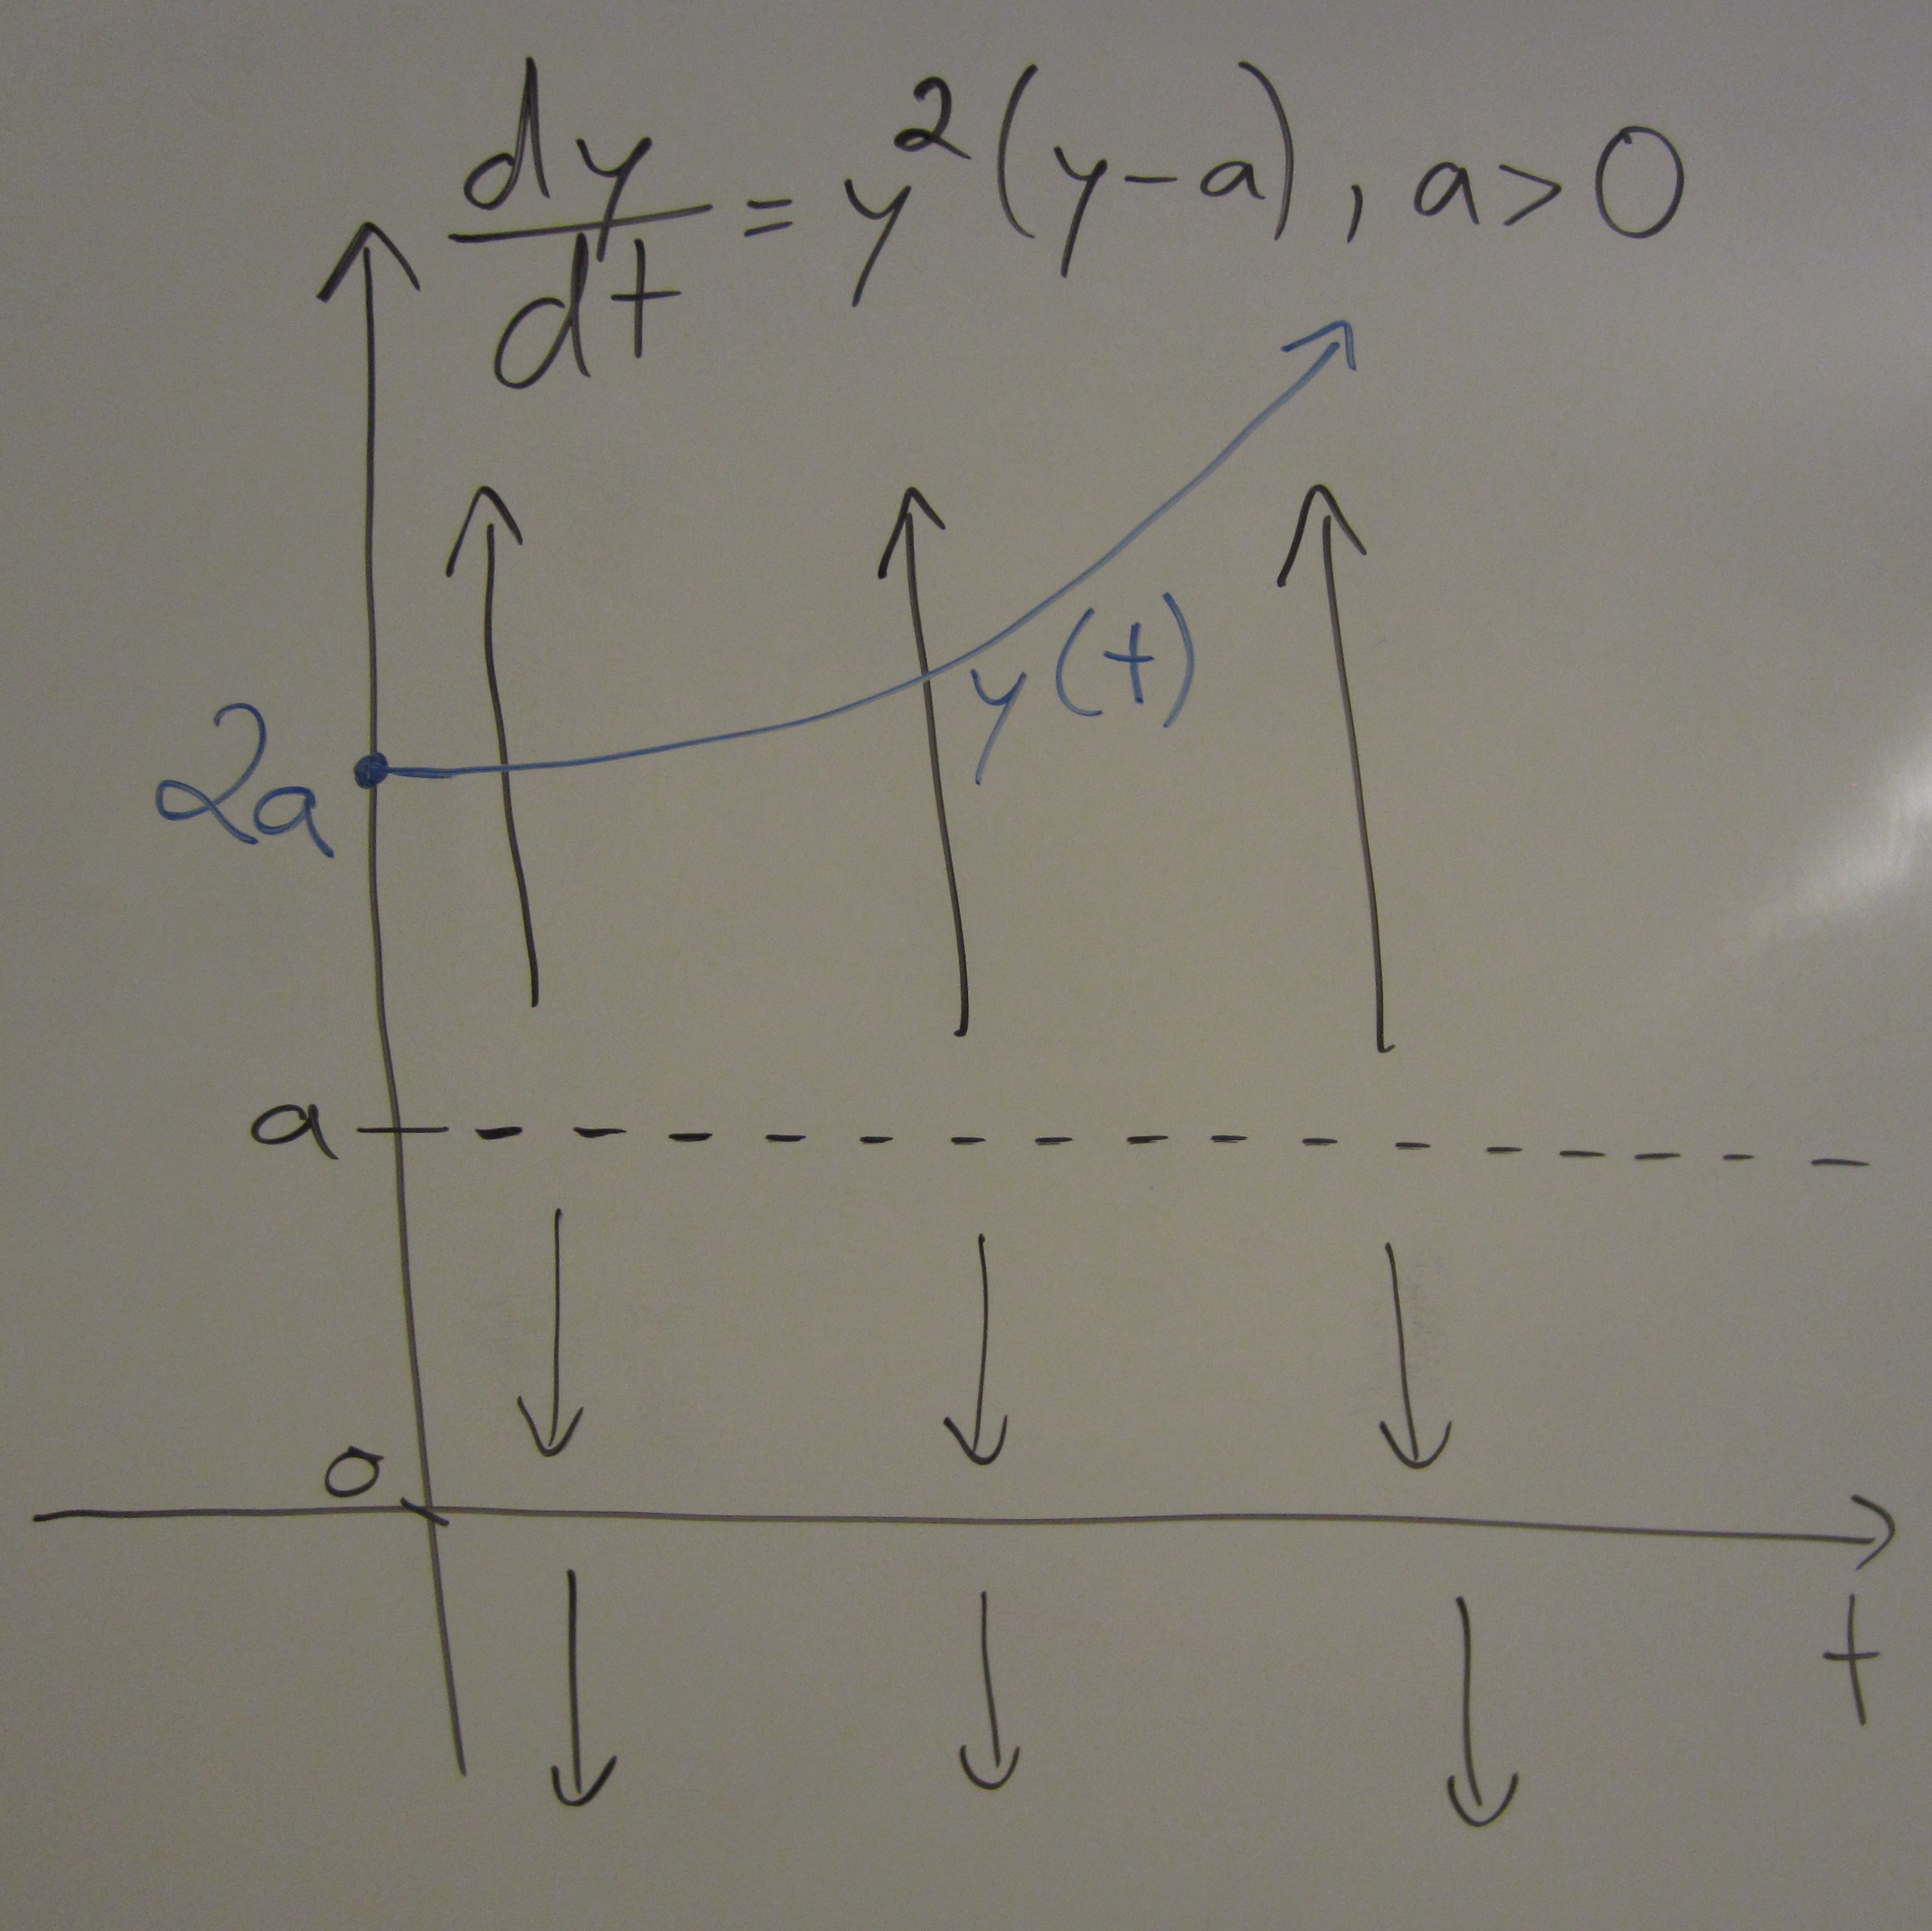 dy/dt = y²(y-a), a>0
y(t)
2a
a
0
t